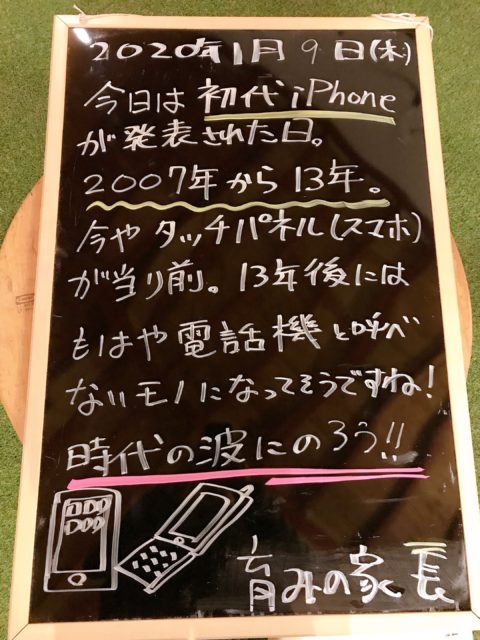 2020年1月9日(木)
今日は初代iPhone
が発表された日。
2007年から13年。
今やタッチパネル(スマホ)
が当り前。13年後には
もはや電話機と呼べ
ないモノになってそうですね!
時代の波にのろう!!
育みの家 長